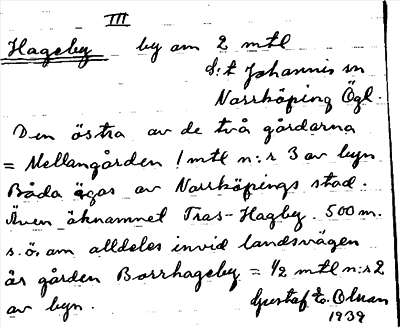 III
Hageby by om 2 mtl
S:t Johannis sn
Norrköping Ögl.
Den östra av de två gårdarna
= Mellangården 1 mtl n:r 3 av byn
Båda ägas av Norrköpings stad.
Även öknamnet Tras-Hagby. 500 m.
s.ö. om alldeles invid landsvägen
är gården Borrhageby = 1/2 mtl n:r 2
av byn. Gustaf E. Olsson
1939